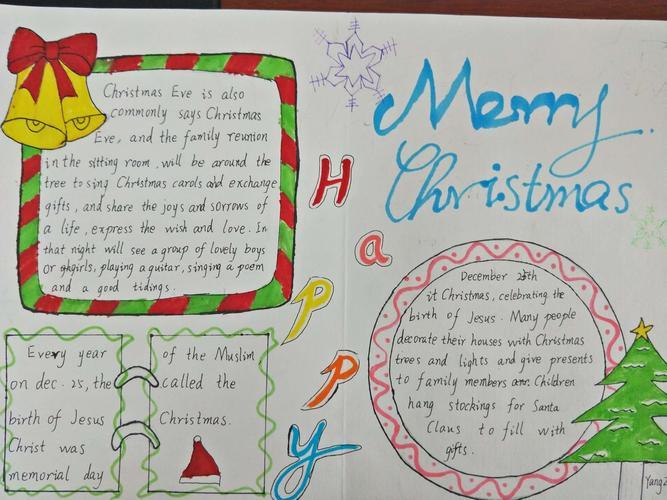 Christmas Eve is also
commonly says Christmas
Eve, and the family reunion
in the sitting room, will be around the
tree to sing Christmas carols and exchange
gifts, and share the joys and sorrows of
a life, express the wish and love. In
that night will see a group of lovely boys
or girls, playing a guitar, singing a poem
and a good tidings.
Merry
Christmas
H
a
p
p
y
December 25th
it Christmas, celebrating the
birth of Jesus. Many people
decorate their houses with Christmas
trees and lights and give presents
to family members Children
hang stockings for Santa
Claus to fill with
gifts.
Every year
on dec. 25, the
birth of Jesus
Christ was
memorial day
of the Muslim
called the
Christmas.
Yang